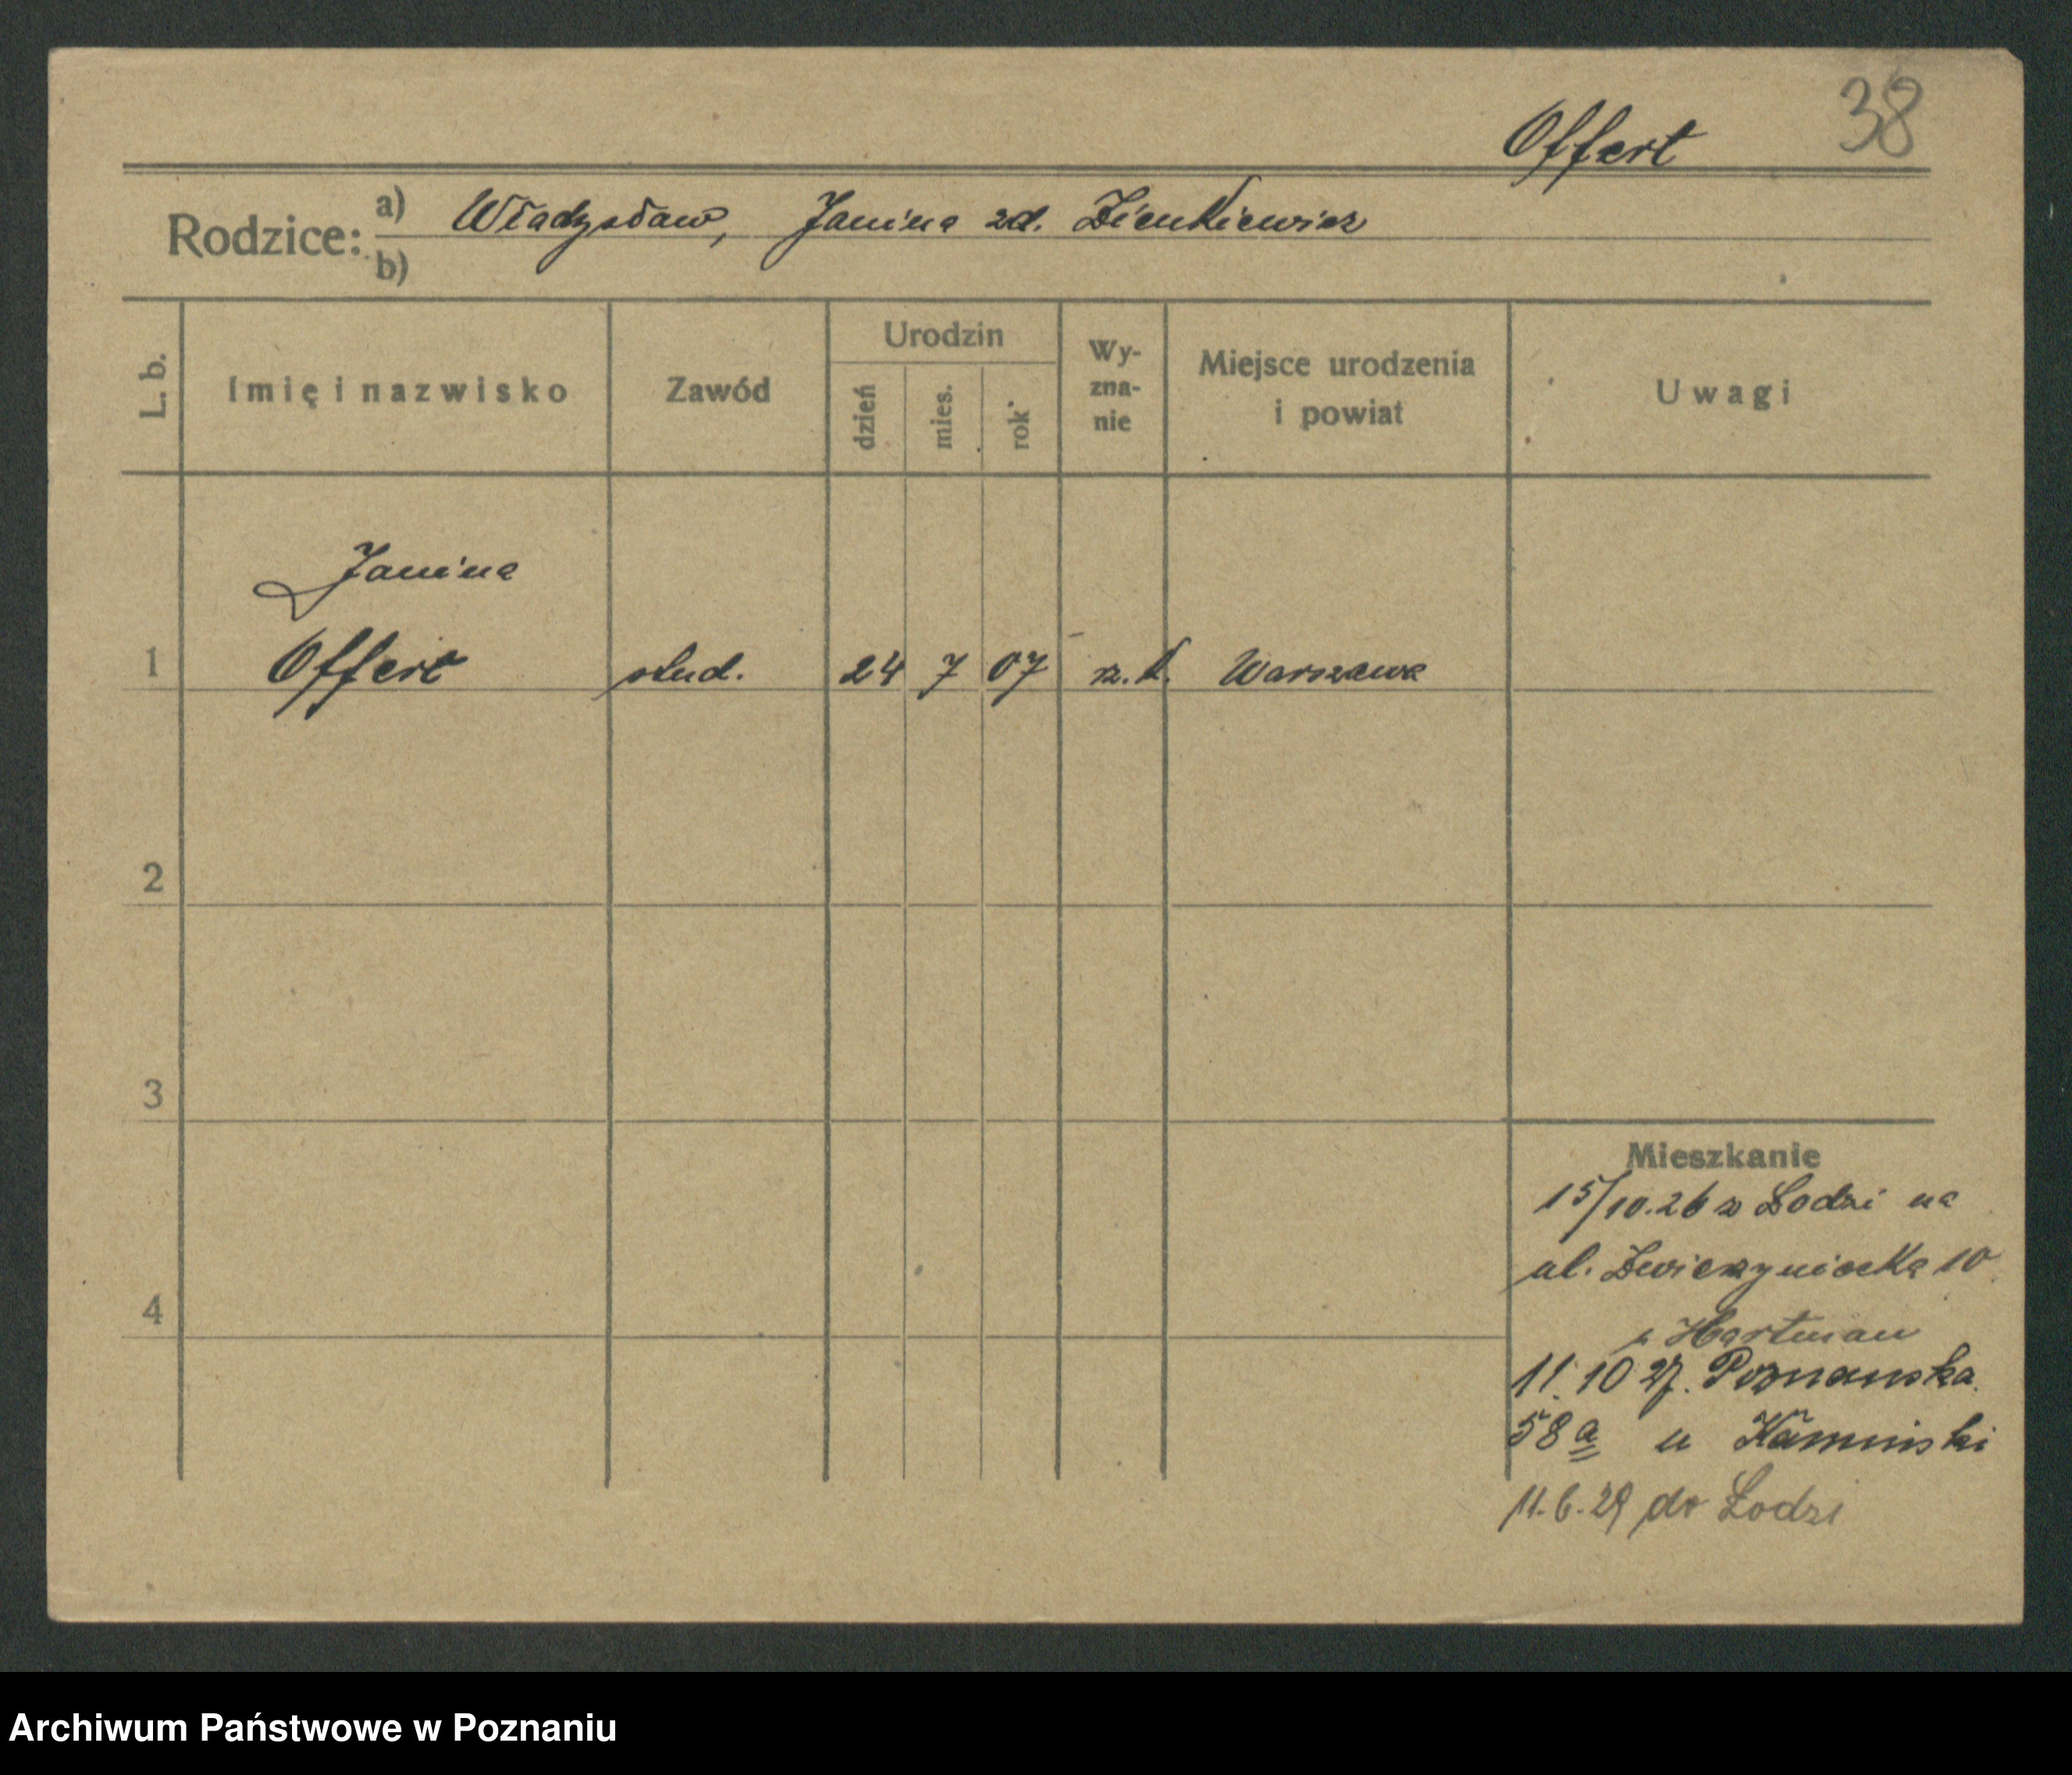 38
Offert
Rodzice: a) Władysław, Janina zd. Zienkiewicz
b)
L. b.
Imię i nazwisko
Zawód
Urodzin
dzień
mies.
rok
Wy-
zna-
nie
Miejsce urodzenia
i powiat
Uwagi
Janina
1 Offert stud. 24 7 07 rz. k. Warszawa
2
3
4
Mieszkanie
15/10.26 z Łodzi na
ul. Zwierzyniecka 10
Hartman
11.10 27. Poznańska
58a u Kaminski
11.6.29 do Łodzi
Archiwum Państwowe w Poznaniu